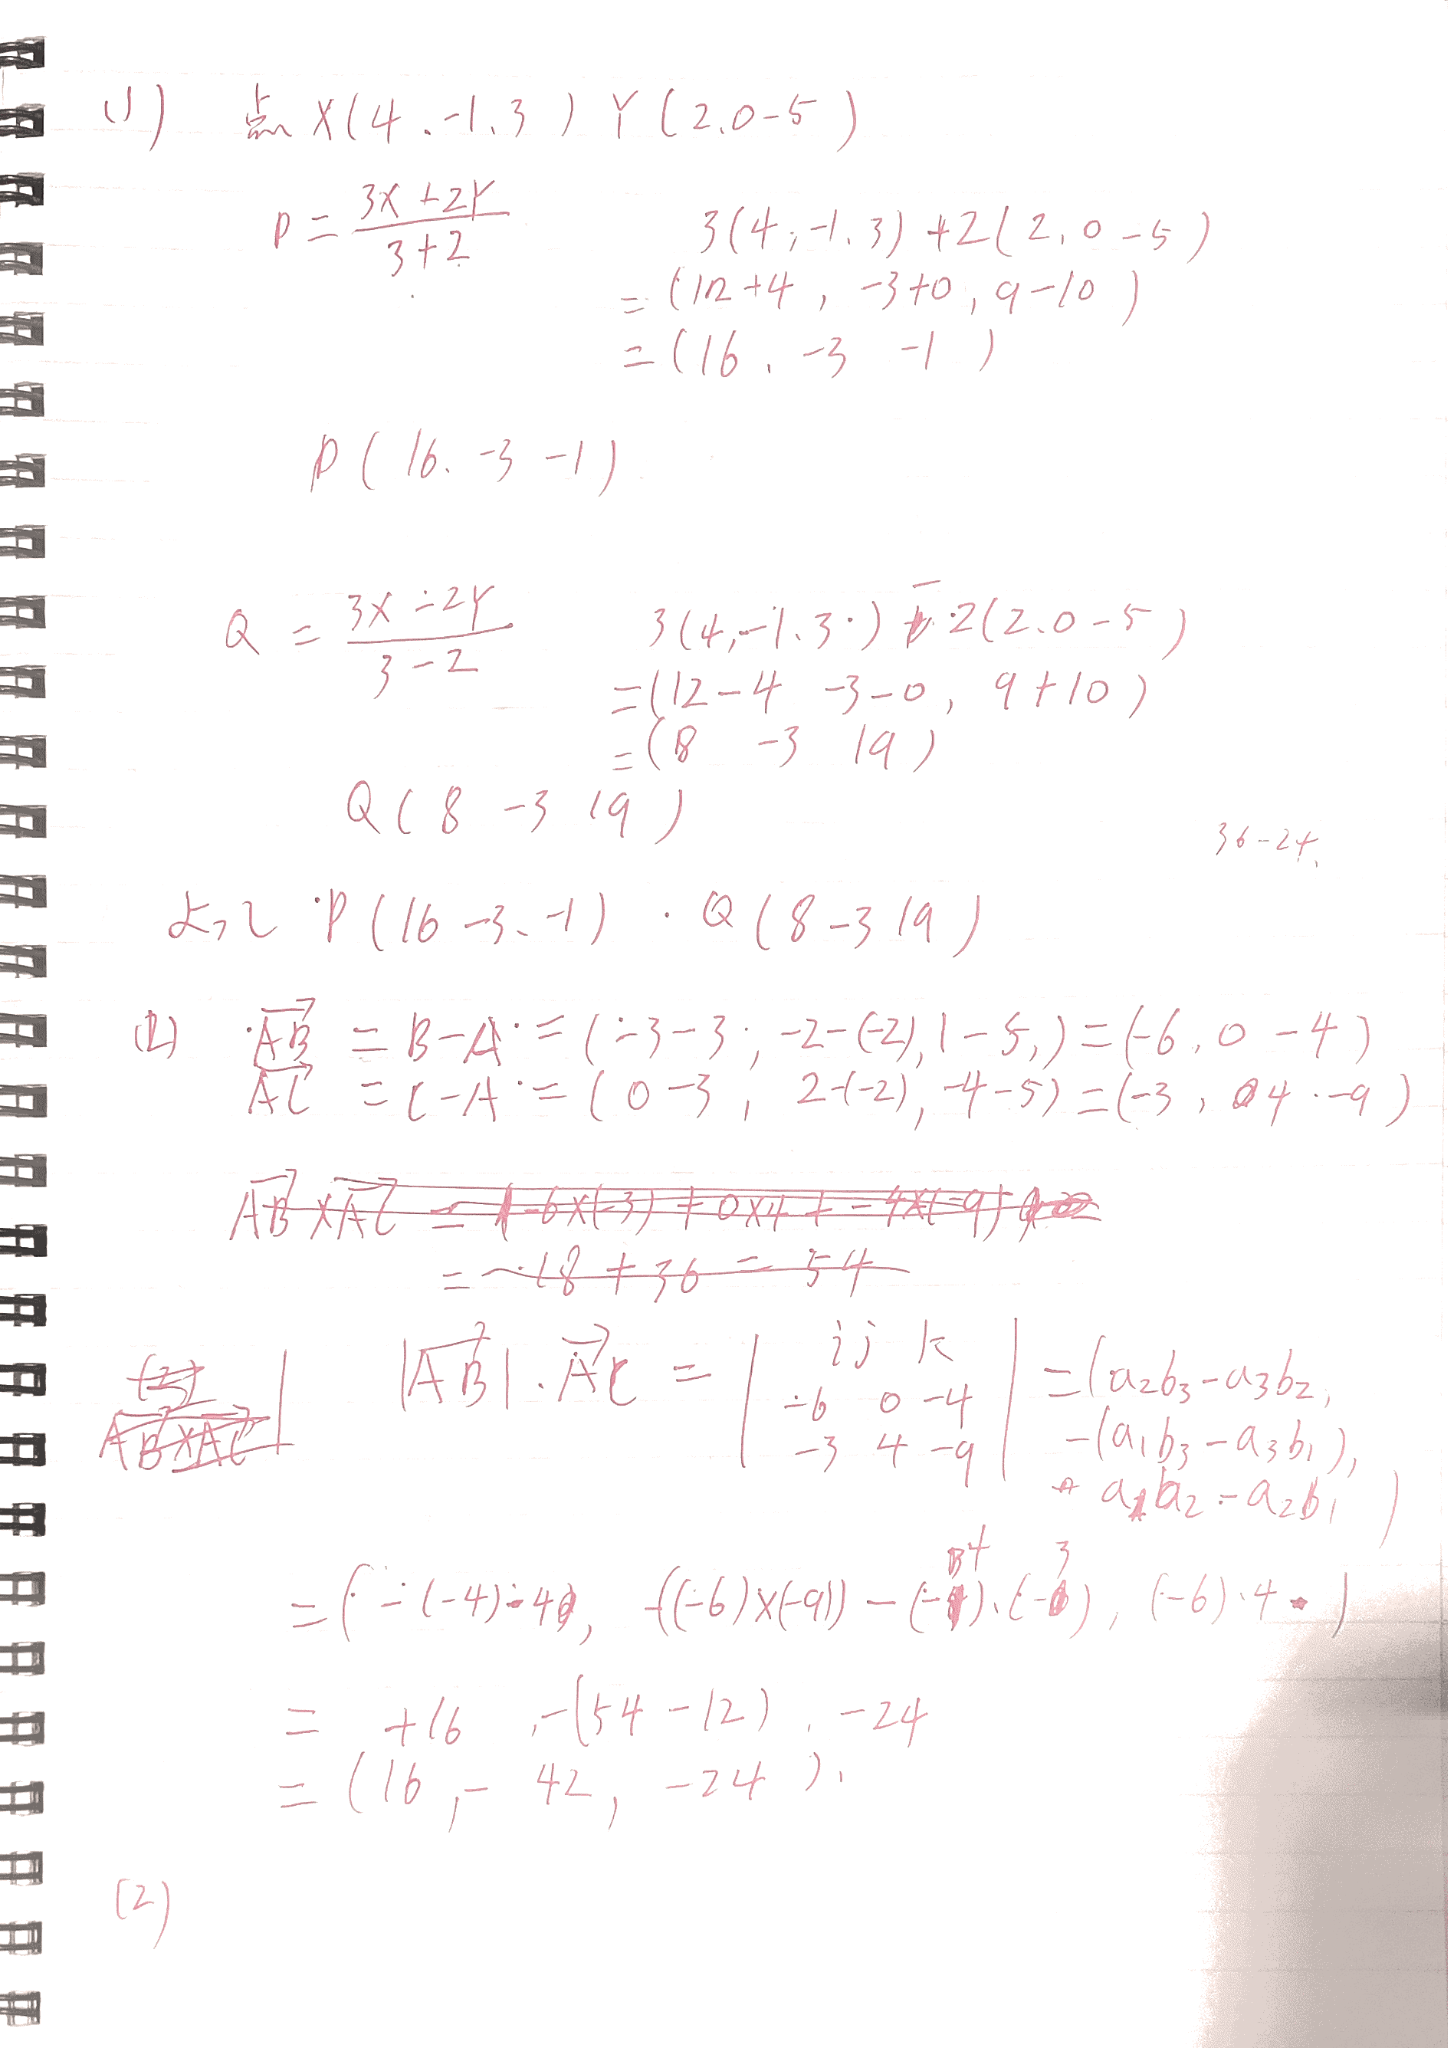 (1) 点 X(4.-1.3) Y(2.0-5)
P = 3X+2Y / 3+2
3(4,-1.3)+2(2,0-5)
=(12+4, -3+0, 9-10)
=(16, -3 -1)
P(16. -3 -1)
Q = 3X-2Y / 3-2
3(4,-1.3)-2(2.0-5)
=(12-4 -3-0, 9+10)
=(8 -3 19)
Q(8 -3 19)
36-24
よって P(16 -3. -1) . Q(8 -3 19)
(2) AB = B-A = (-3-3, -2-(-2), 1-5,) = (-6, 0 -4)
AC = C-A = (0-3, 2-(-2), -4-5) = (-3, 4 . -9)
AB×AC = (-6×(-3) + 0×4 + -4×(-9)
= 18+36 = 54
AB×AC
|AB|.AC = | i j k
-6 0 -4
-3 4 -9 | = (a2b3-a3b2,
-(a1b3-a3b1),
a1b2-a2b1)
=( -(-4)・4, -((-6)×(-9)) - (-4).(-3), (-6).4 )
= +16 ,-(54-12), -24
= (16,- 42, -24).
(2)